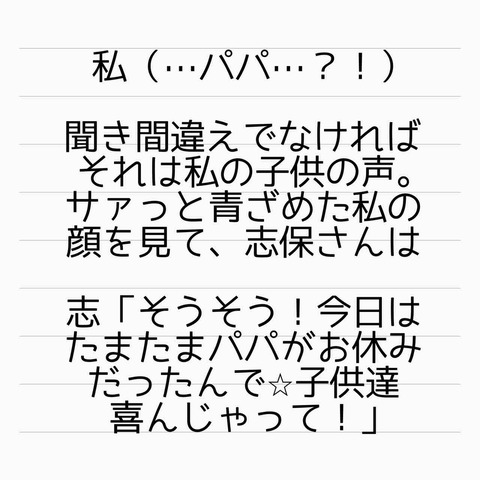 私（…パパ…？！）
聞き間違えでなければ
それは私の子供の声。
サァっと青ざめた私の
顔を見て、志保さんは
志「そうそう！今日は
たまたまパパがお休み
だったんで☆子供達
喜んじゃって！」